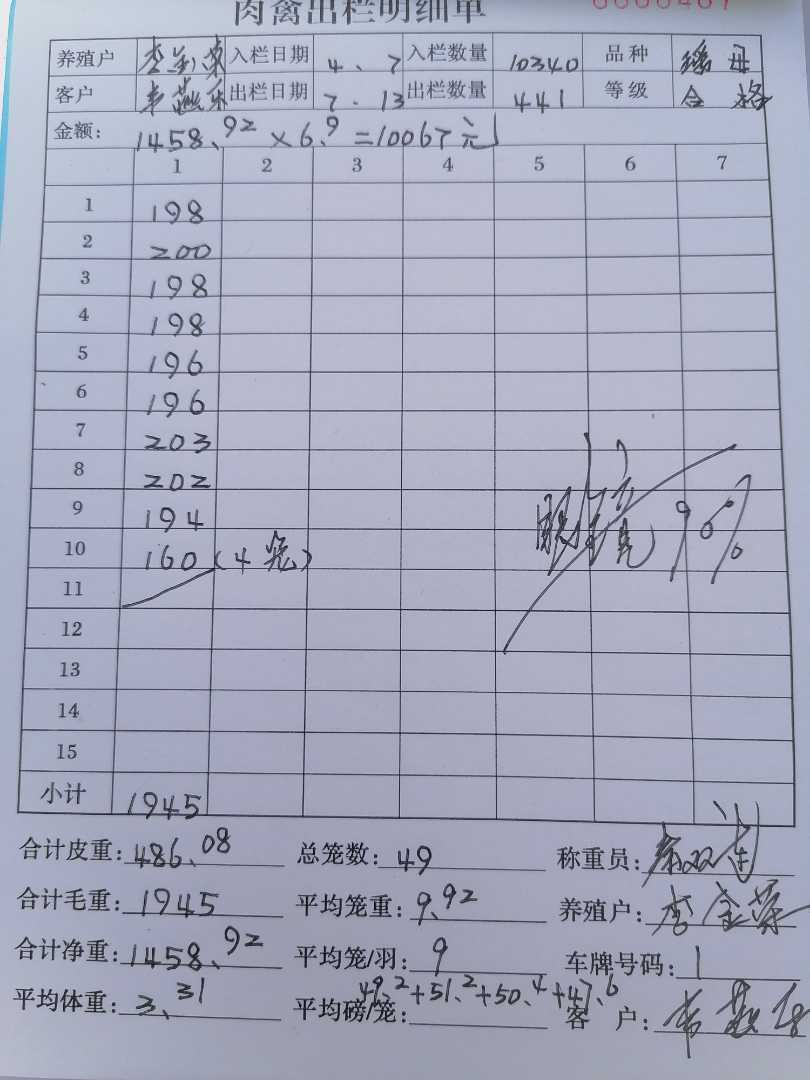 肉禽出栏明细单
养殖户 李 入栏日期 4、7 入栏数量 10340 品种 母
客户 韦燕 出栏日期 7.13 出栏数量 441 等级 合格
金额: 1458.92×6.9=10067元
1 2 3 4 5 6 7
1 198
2 200
3 198
4 198
5 196
6 196
7 203
8 202
9 194
10 160(4笼)
11
12
13
14
15
小计 1945
合计皮重: 486.08 总笼数: 49 称重员: 双
合计毛重: 1945 平均笼重: 9.92 养殖户: 李
合计净重: 1458.92 平均笼/羽: 9 车牌号码: 1
平均体重: 3.31 平均磅/笼: 49.2+51.2+50.4+47.6 客户: 韦燕